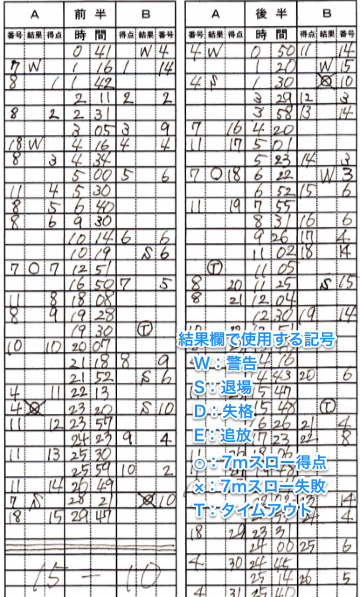 A 前半 B
番号 結果 得点 時間 得点 結果 番号
0 41 W 4
7 W 1 16 1 14
8 1 1 42
2 11 2 2
8 2 2 31
3 05 3 9
18 W 4 16 4 4
8 3 4 34
5 00 5 6
11 4 5 30
8 5 6 40
8 6 9 30
10 14 6 6
10 19 S 6
7 ○ 7 12 51
16 50 7 5
11 8 18 08
8 9 19 28
19 30 Ⓣ
10 10 20 07
21 18 8 9
21 52 S 6
4 11 22 13
4 23 20 S 10
11 12 23 57
24 23 9 4
11 13 25 30
25 59 10 2
11 14 26 49
7 S 28 21 10
8 15 29 47
15 - 10
A 後半 B
番号 結果 得点 時間 得点 結果 番号
4 W 0 50 11 14
1 20 W 5
4 S 1 30 10
3 29 12 3
3 58 13 14
7 16 4 20
11 17 5 01
5 23 14 3
7 ○ 18 6 22 W 3
6 52 15 6
11 19 7 55
8 31 16 6
9 26 17 4
11 02 18 14
Ⓣ 11 05
8 20 11 25 S 15
8 21 12 04
12 30 19 14
結果欄で使用する記号
W：警告
S：退場
D：失格
E：追放
○：7mスロー得点
×：7mスロー失敗
T：タイムアウト
43 20 6
15 47
15 48 Ⓣ
16 26 21 4
17 23 22 8
18 29 23 31
24 00 25 6
4 30 24 46
25 14 26 5
4 31 25 40